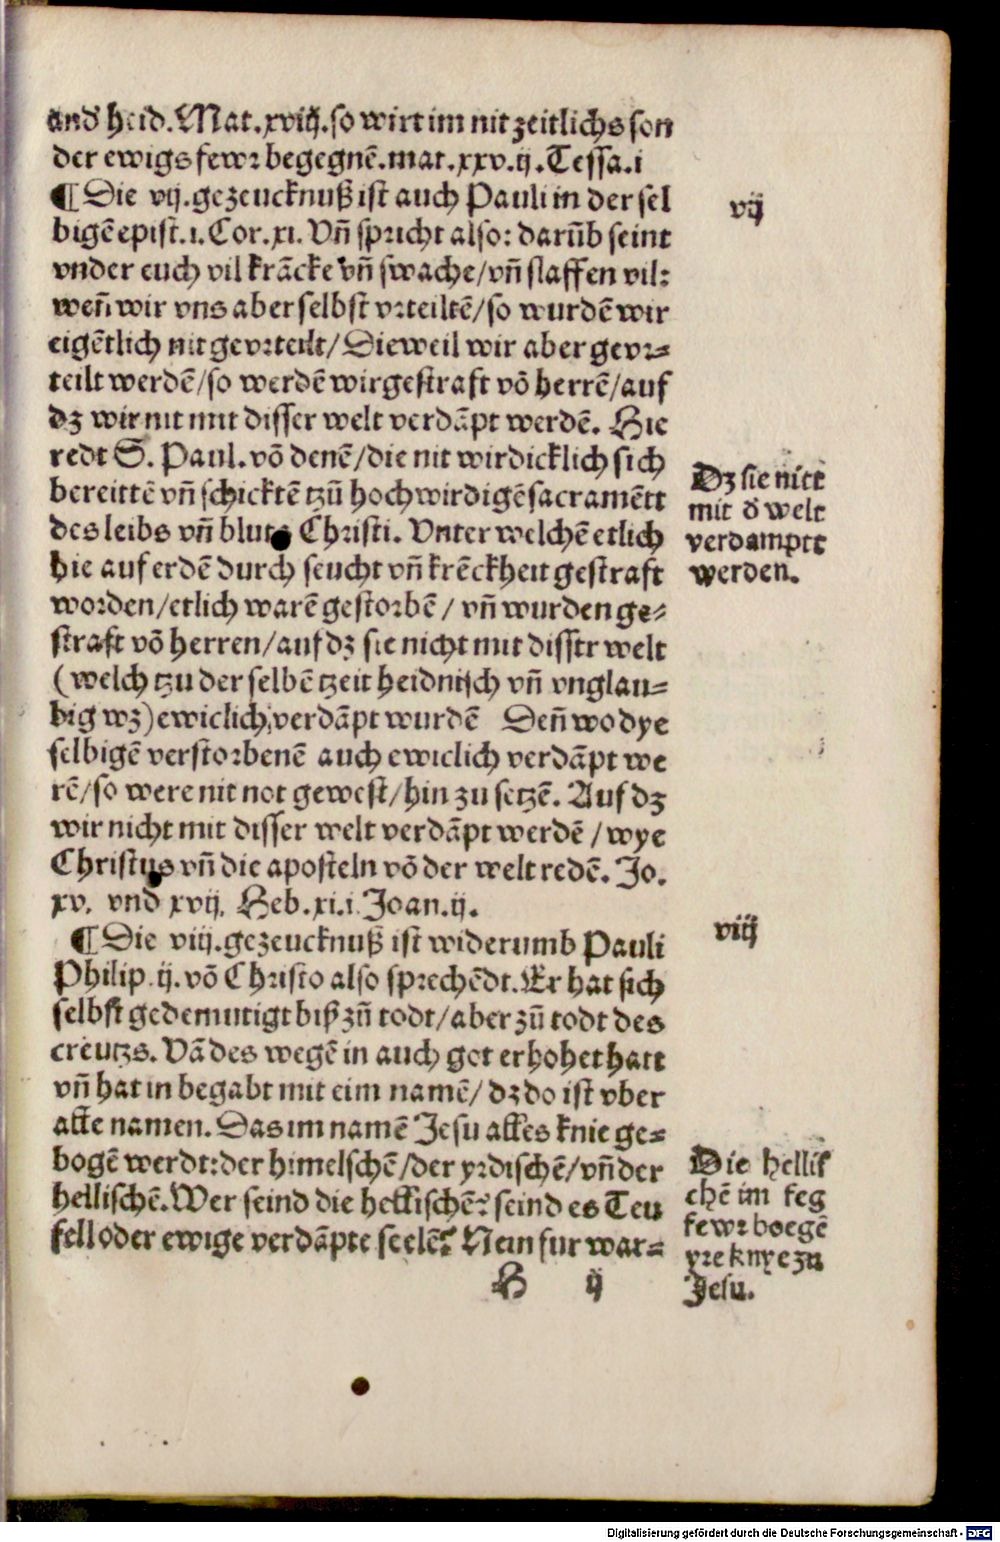 and̕ heid. Mat. xviij. so wirt im nit zeitlichs son
der ewigs fewr begegnē. mat. xxv. ij. Tessa. i
¶ Die vij. gezeucknuß ist auch Pauli in der sel
bigē epist. i. Cor. xi. Vn̄ spricht also: darūb seint
vnder euch vil krācke vn̄ swache/vn̄ slaffen vil:
wen̄ wir vns aber selbst vrteiltē/so wurdē wir
eigētlich nit gevrteilt/Dieweil wir aber gevr⸗
teilt werdē/so werdē wir gestraft vō herrē/auf
dz wir nit mit disser welt verdāpt werdē. Hie
redt S. Paul. vō denē/die nit wirdicklich sich
bereittē vn̄ schicktē tzū hochwirdigē sacramētt
des leibs vn̄ bluts Christi. Vnter welchē etlich
hie auf erdē durch seucht vn̄ krēckheit gestraft
worden/etlich warē gestorbē/ vn̄ wurden ge⸗
straft vō herren/auf dz sie nicht mit disser welt
(welch tzu der selbē tzeit heidnisch vn̄ vnglau⸗
big wz) ewiclich verdāpt wurdē Den̄ wo dye
selbigē verstorbenē auch ewiclich verdāpt we
rē/so were nit not gewest/hin zu setzē. Auf dz
wir nicht mit disser welt verdāpt werdē/wye
Christus vn̄ die aposteln vō der welt redē. Jo.
xv. vnd xvij. Heb. xi. i. Joan. ij.
¶ Die viij. gezeucknuß ist widerumb Pauli
Philip. ij. vō Christo also sprechēdt. Er hat sich
selbst gedemutigt biß zū todt/aber zū todt des
creutzs. Vā des wegē in auch got erhohet hatt
vn̄ hat in begabt mit eim namē/ dz do ist vber
alle namen. Das im namē Jesu alles knie ge⸗
bogē werdt: der himelschē/der yrdischē/vn̄ der
hellischē. Wer seind die hellischē? seind es Teu
fell oder ewige verdāpte seelē? Nein fur war⸗
H ij
vij
Dz sie nitt
mit d̕ welt
verdamptt
werden.
viij
Die hellis
chē im feg
fewr boegē
yre knye zu
Jesu.
Digitalisierung gefördert durch die Deutsche Forschungsgemeinschaft - DFG